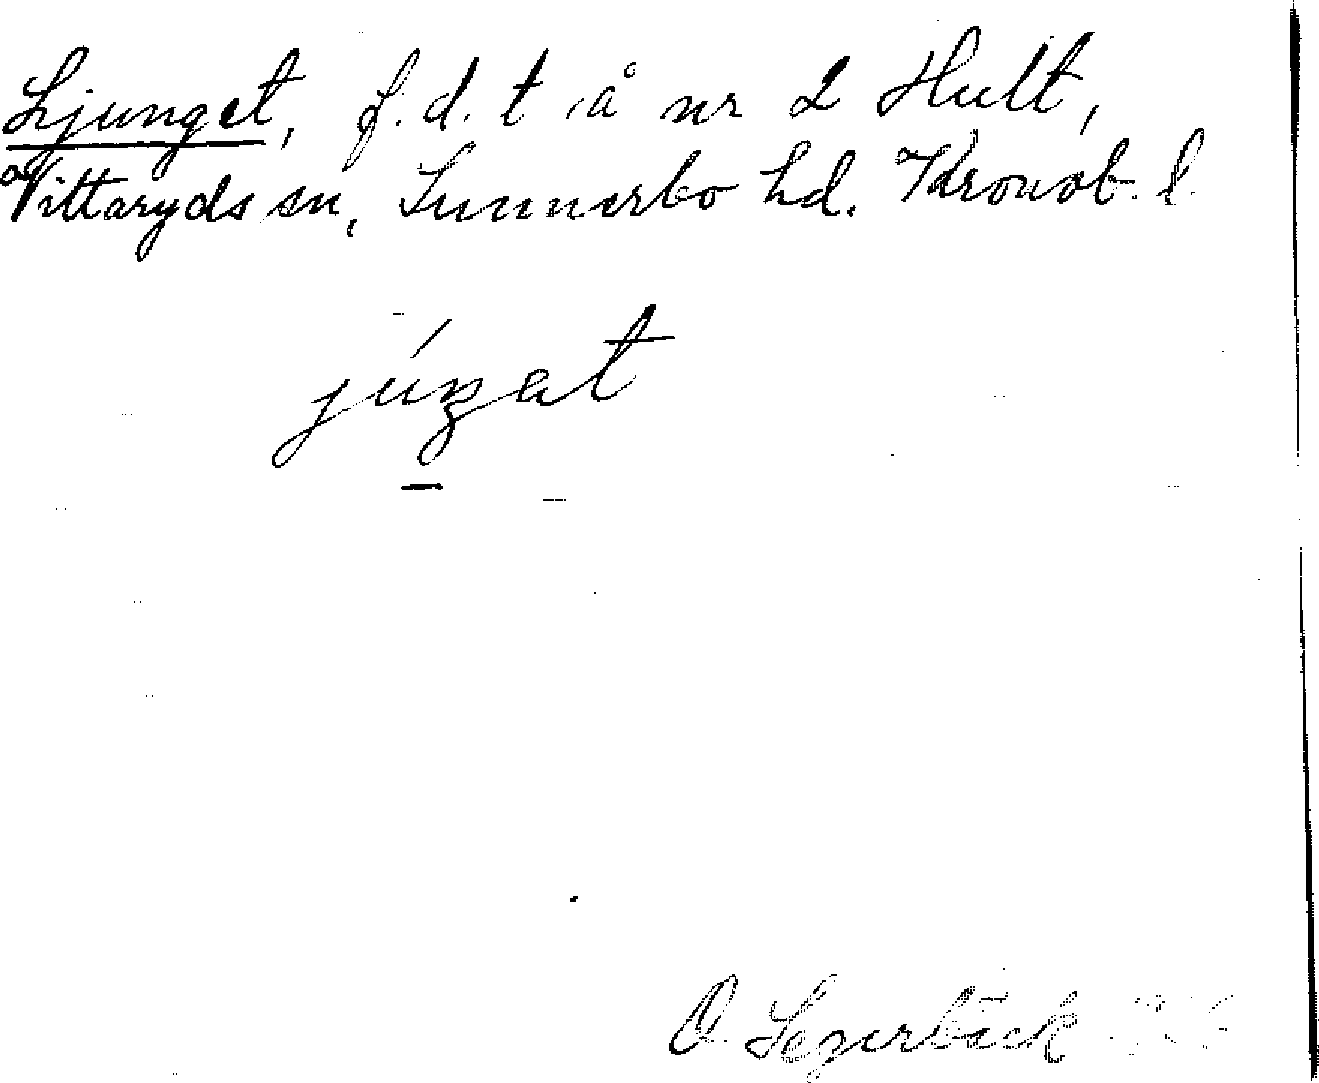 Ljunget, f.d. t å nr 2 Hult,
Vittaryds sn, Sunnerbo hd. Kronob. l.
júŋat
O. Segerbäck